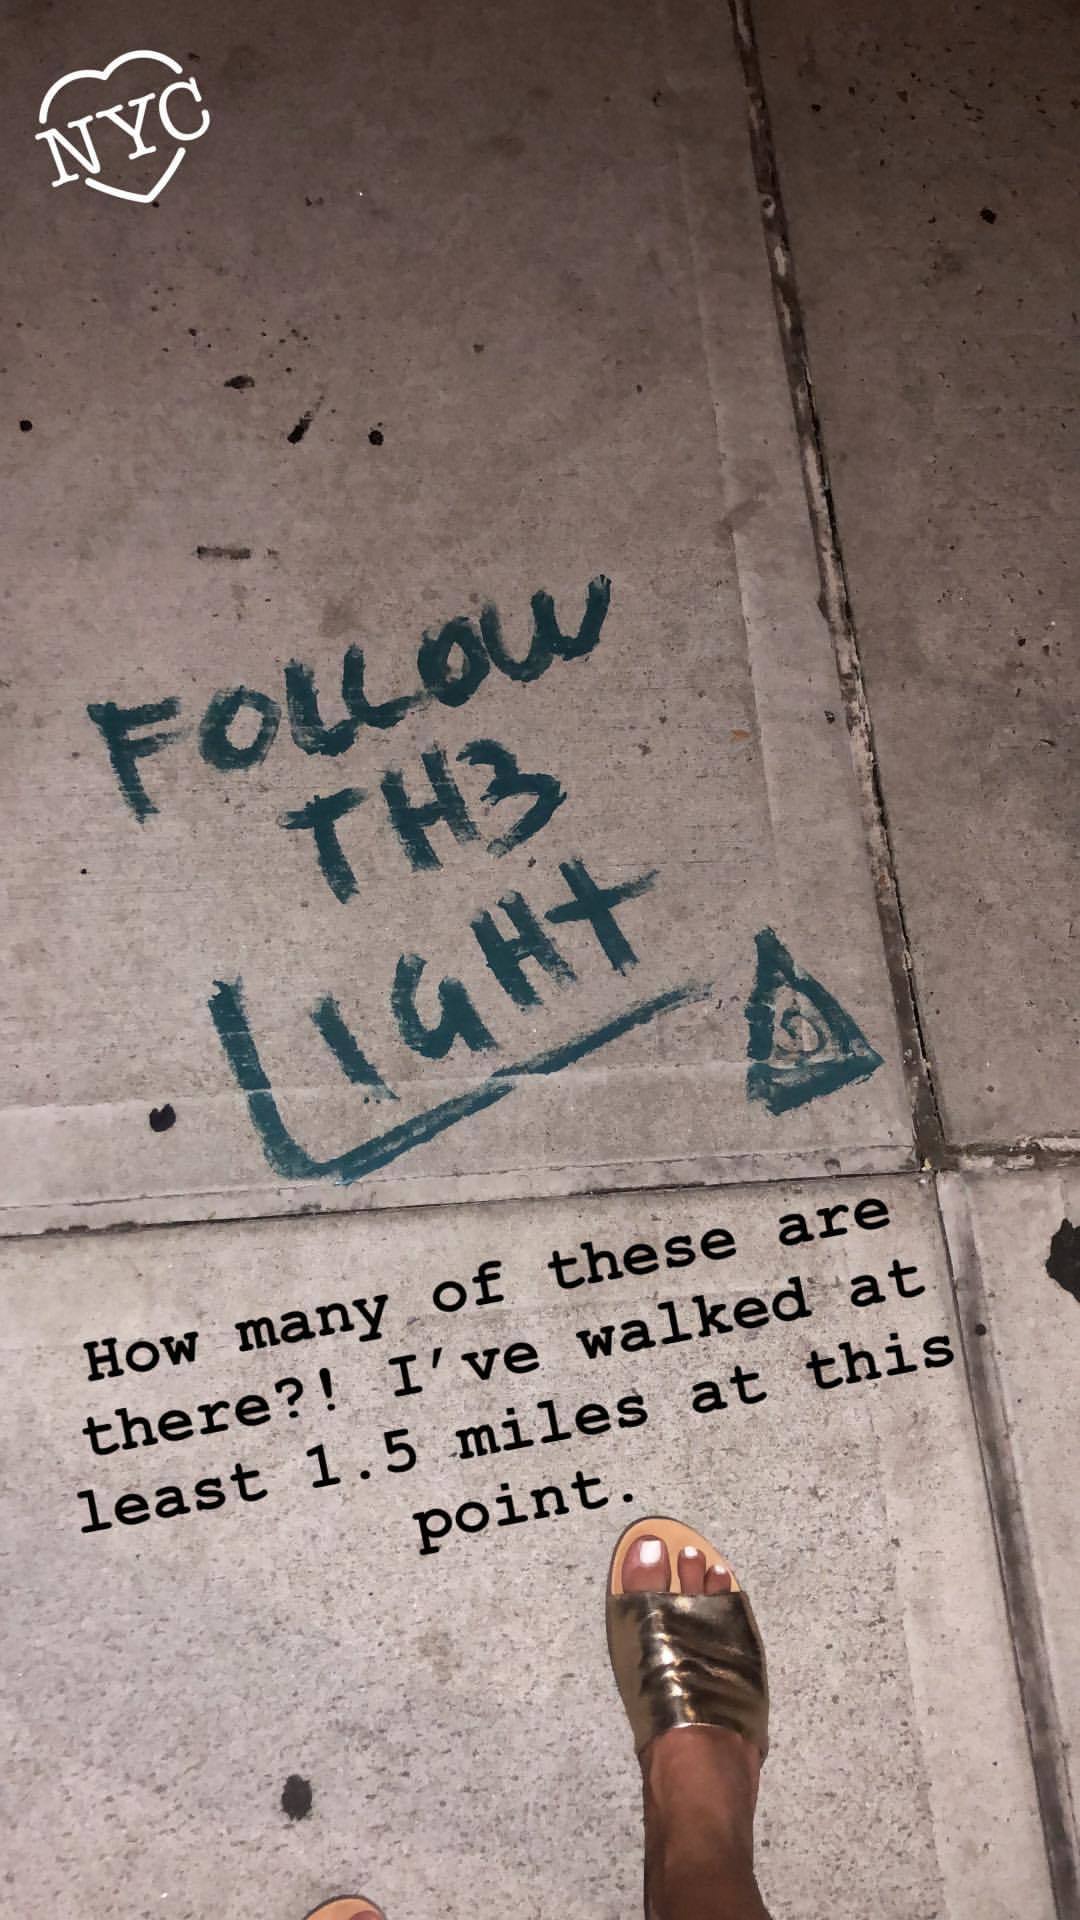 NYC
FOLLOW
TH3
LIGHT
How many of these are
there?! I've walked at
least 1.5 miles at this
point.